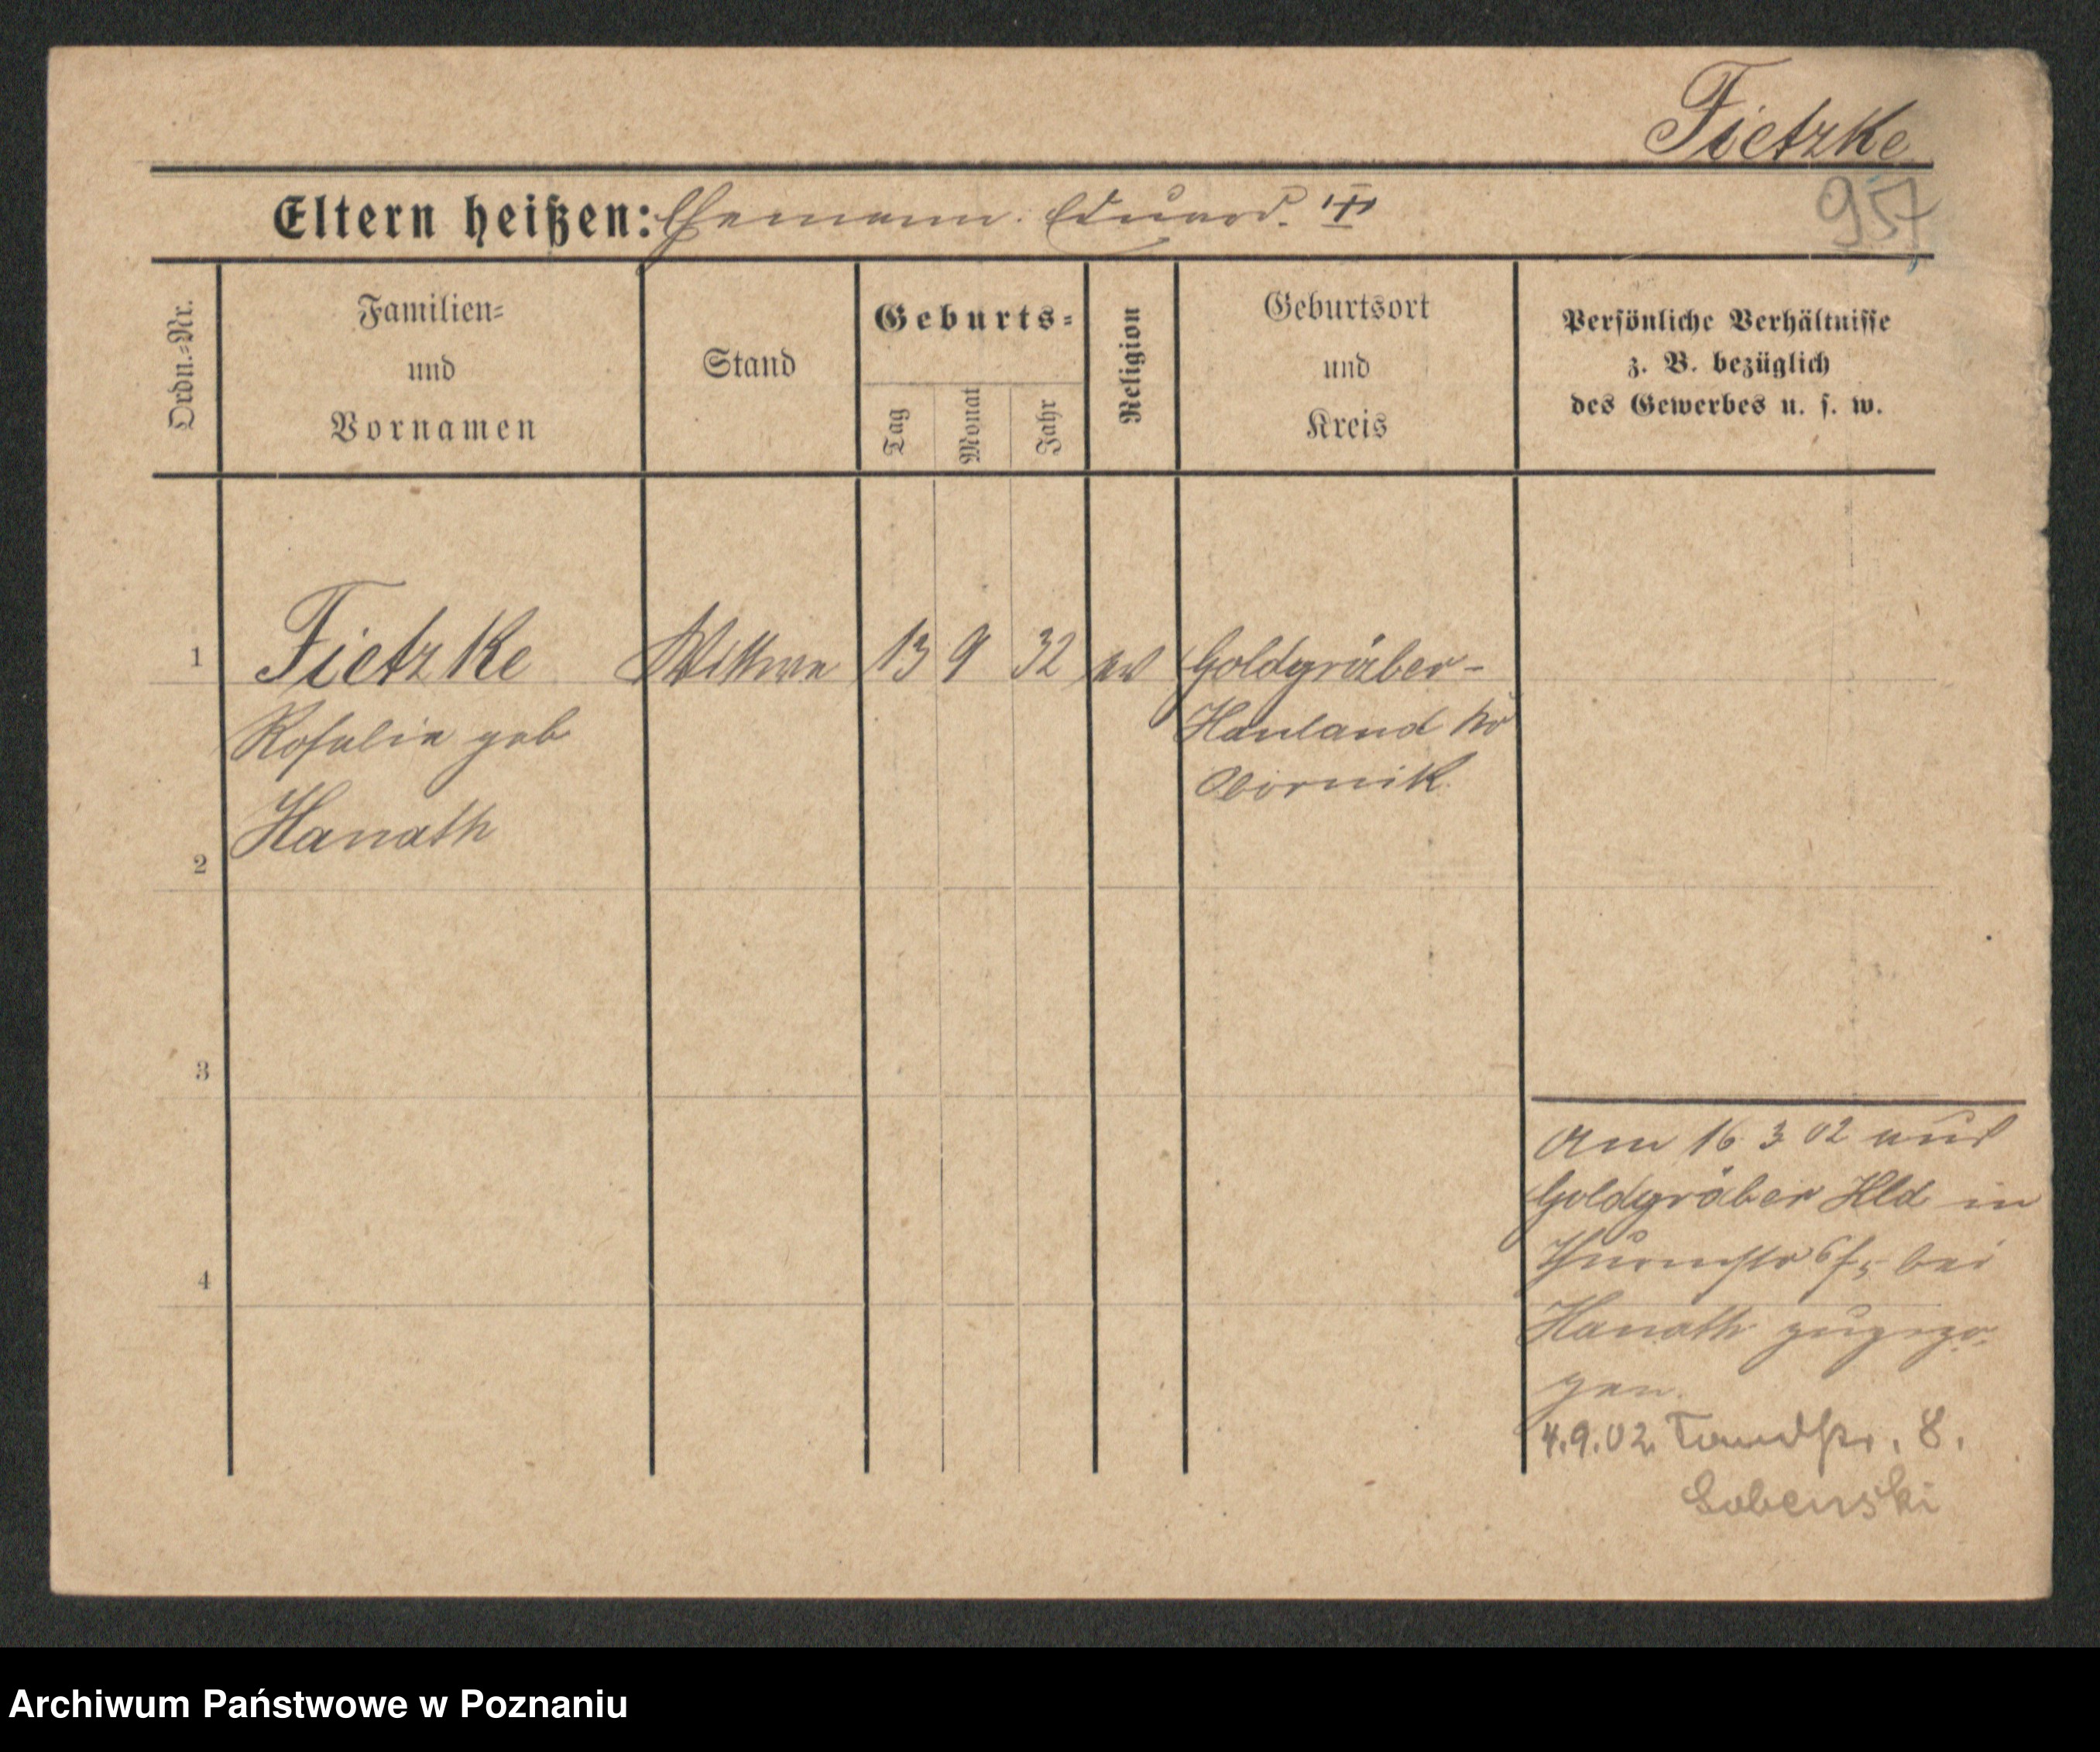 Fietzke
957
Eltern heißen: Ehemann. Eduard.
Ordn.=Nr.
Familien=
und
Vornamen
Stand
Geburts=
Tag
Monat
Jahr
Religion
Geburtsort
und
Kreis
Persönliche Verhältnisse
z. B. bezüglich
des Gewerbes u. s. w.
1 Fietzke Wittwe 13 9 32 ev Goldgräber-
Rosalie geb Hauland Kr
Obornik
Hanath
2
3
4
Am 16 3 02 aus
Goldgräber Hld in
bei
Hanath zugezo-
gen.
4.9.02. 8.
Archiwum Państwowe w Poznaniu